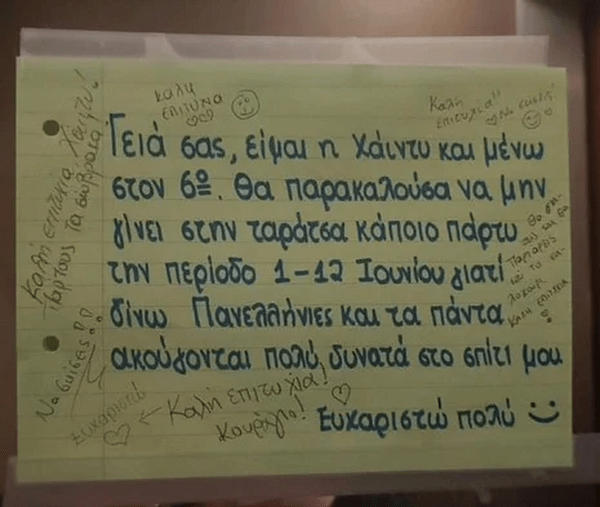 Καλή
επιτυχία
Καλή
επιτυχία!!
Να σκίσεις!
Καλή επιτυχία, Χάιντυ!
Παρτους τα σώβρακα
Γειά σας, είμαι η Χάιντυ και μένω
στον 6º. Θα παρακαλούσα να μην
γίνει στην ταράτσα κάποιο πάρτυ
την περίοδο 1-12 Ιουνίου γιατί
δίνω Πανελλήνιες και τα πάντα
ακούγονται πολύ δυνατά στο σπίτι μου
Ευχαριστώ πολύ
Καλή επιτυχία
Να σκίσεις!!
Ευχαριστώ
Καλή επιτυχία!
Κουράγιο!